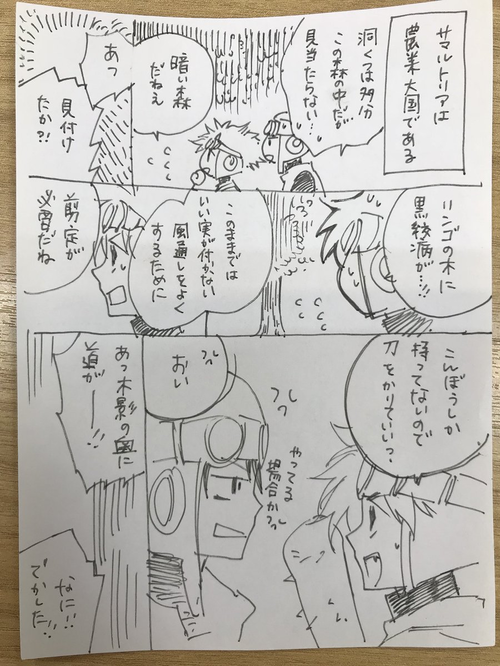 サマルトリアは
農業大国である
洞くつは多分
この森の中だが
見当たらない…
暗い森
だねえ
あっ
見付け
たか?!
リンゴの木に
黒綾病が…!!
このままでは
いい実が付かない
風通しをよく
するために
剪定が
必要だね
こんぼうしか
持ってないので
刀をかりていい?
おい
やってる
場合か
あっ木影の奥に
道がー!!
なに!!
でかした!!